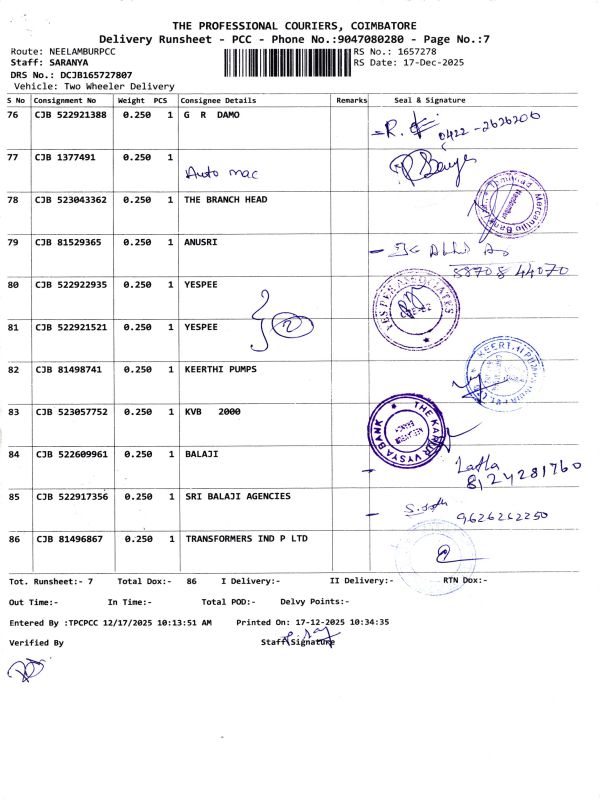 THE PROFESSIONAL COURIERS, COIMBATORE
Delivery Runsheet - PCC - Phone No.:9047080280 - Page No.:7
Route: NEELAMBURPCC RS No.: 1657278
Staff: SARANYA RS Date: 17-Dec-2025
DRS No.: DCJB165727807
Vehicle: Two Wheeler Delivery
S No Consignment No Weight PCS Consignee Details Remarks Seal & Signature
76 CJB 522921388 0.250 1 G R DAMO
0422 - 2626206
77 CJB 1377491 0.250 1
Auto mac
78 CJB 523043362 0.250 1 THE BRANCH HEAD
Mercantile Bank
79 CJB 81529365 0.250 1 ANUSRI
88708 44070
80 CJB 522922935 0.250 1 YESPEE
YES PEE ASSOCIATES
81 CJB 522921521 0.250 1 YESPEE
2
82 CJB 81498741 0.250 1 KEERTHI PUMPS
83 CJB 523057752 0.250 1 KVB 2000
THE KARUR VYSYA BANK
84 CJB 522609961 0.250 1 BALAJI
Latha
8124281760
85 CJB 522917356 0.250 1 SRI BALAJI AGENCIES
9626262250
86 CJB 81496867 0.250 1 TRANSFORMERS IND P LTD
Tot. Runsheet:- 7 Total Dox:- 86 I Delivery:- II Delivery:- RTN Dox:-
Out Time:- In Time:- Total POD:- Delvy Points:-
Entered By :TPCPCC 12/17/2025 10:13:51 AM Printed On: 17-12-2025 10:34:35
Verified By Staff Signature